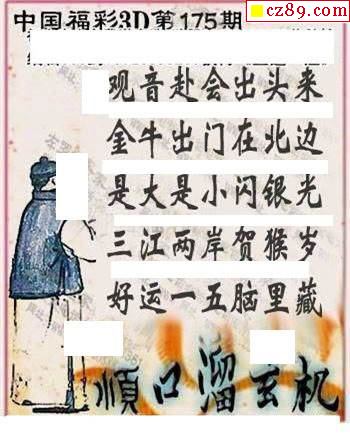 cz89.com
中国福彩3D第175期
观音赴会出头来
金牛出门在北边
是大是小闪银光
三江两岸贺猴岁
好运一五脑里藏
顺口溜玄机